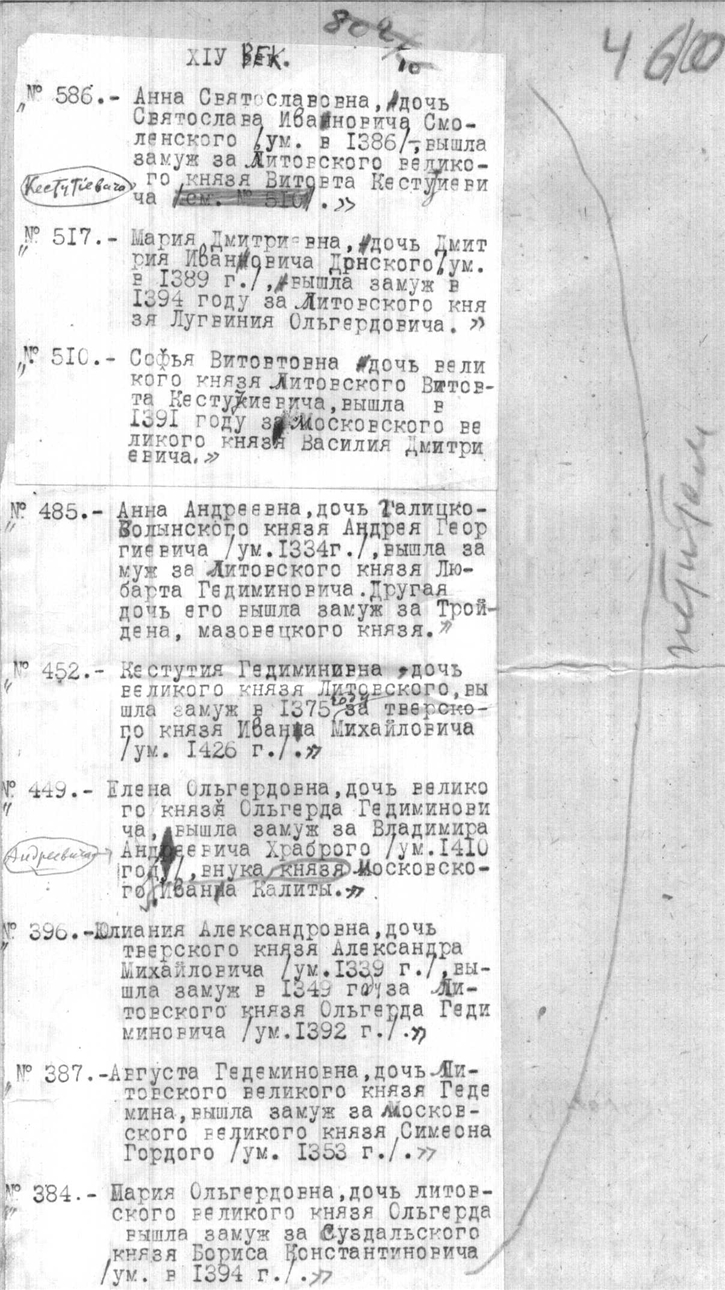 802/10
4600
XIV ВЕК.
„№ 586.- Анна Святославовна, дочь
Святослава Ивановича Смо-
ленского /ум. в 1386/-, вышла
замуж за Литовского велико-
Кестутиевича
го князя Витовта Кестутиеви
ча /см. № 510/.»
„№ 517.- Мария Дмитриевна, дочь Дмит
рия Ивановича Днского/ум.
в 1389 г./, вышла замуж в
1394 году за Литовского кня
зя Лугвиния Ольгердовича.»
„№ 510.- Софья Витовтовна дочь вели
кого князя Литовского Витов-
та Кестукиевича, вышла в
1391 году за Московского ве
ликого князя Василия Дмитри
евича.»
„№ 485.- Анна Андреевна, дочь Галицко-
Волынского князя Андрея Геор
гиевича /ум.1334г./, вышла за
муж за Литовского князя Лю-
барта Гедиминовича. Другая
дочь его вышла замуж за Трой-
дена, мазовецкого князя.»
петитом
„№ 452.- Кестутия Гедиминивна, дочь
великого князя Литовского, вы
шла замуж в 1375 году за тверско-
го князя Ивана Михайловича
/ум. 1426 г./.»
„№ 449.- Елена Ольгердовна, дочь велико
го князя Ольгерда Гедиминови
ча, вышла замуж за Владимира
Андреевича
Андреевича Храброго /ум.1410
год/, внука князя Московско-
го Ивана Калиты.»
„№ 396.-Юлиания Александровна, дочь
тверского князя Александра
Михайловича /ум.1339 г./, вы-
шла замуж в 1349 году за Ли-
товского князя Ольгерда Геди
миновича /ум.1392 г./.»
„№ 387.-Августа Гедеминовна, дочь Ли-
товского великого князя Геде
мина, вышла замуж за Москов-
ского великого князя Симеона
Гордого /ум. 1353 г./.»
„№ 384.- Мария Ольгердовна, дочь литов-
ского великого князя Ольгерда
вышла замуж за Суздальского
князя Бориса Константиновича
/ум. в 1394 г./.»